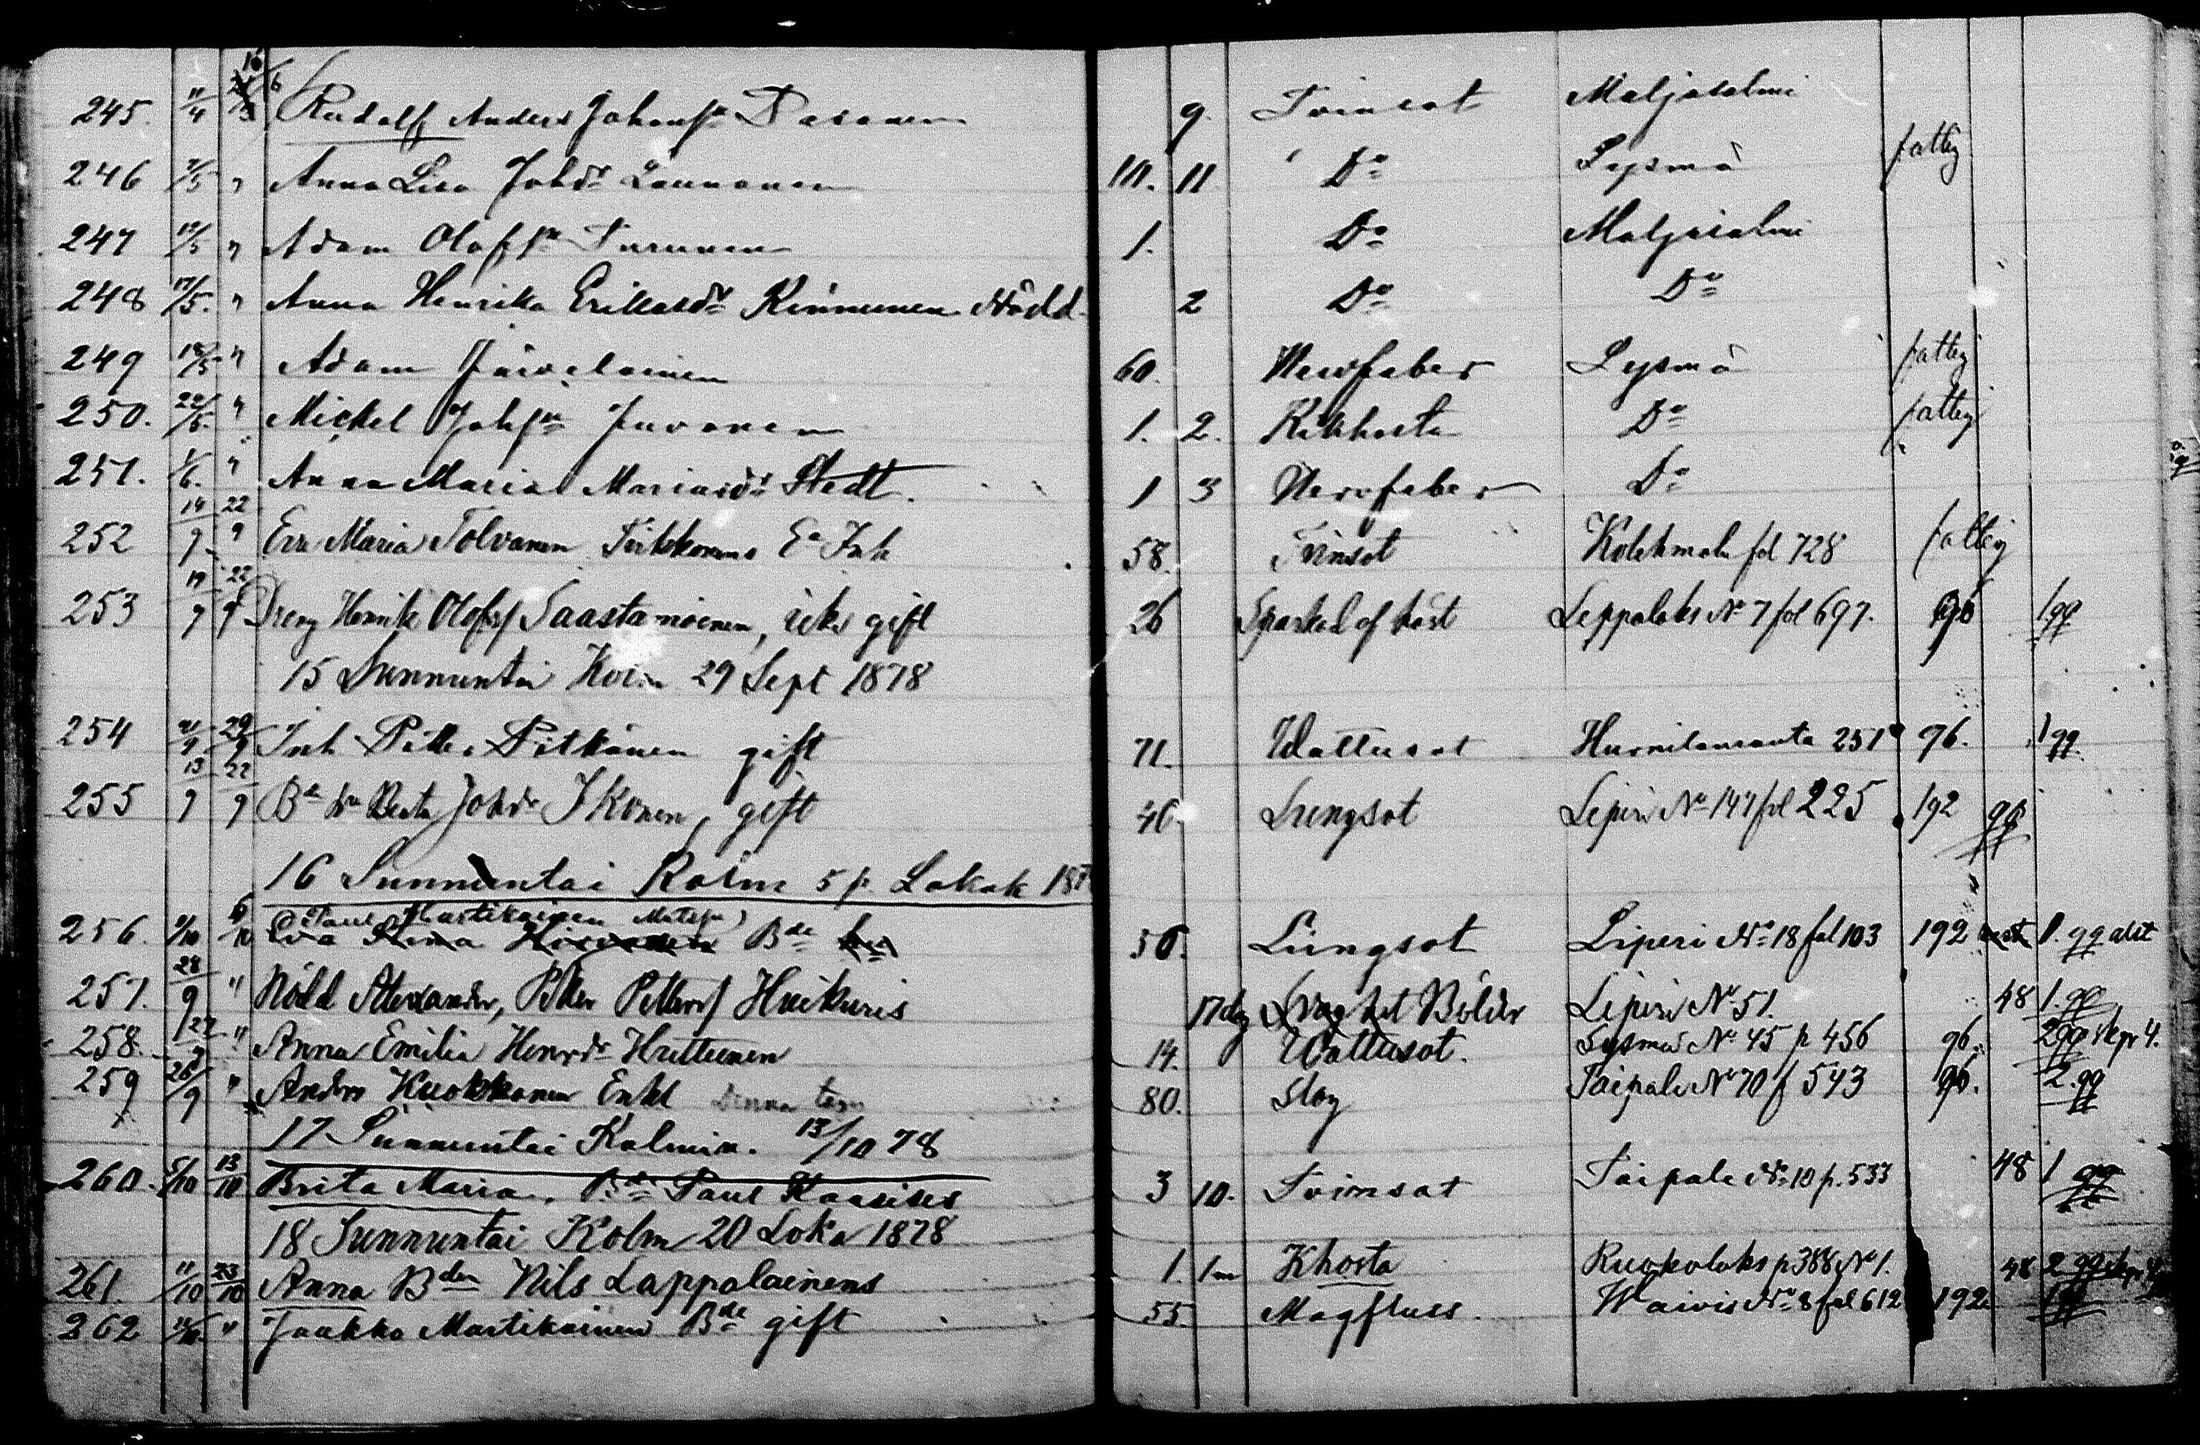 245. 11/4 16/6 Rudolf Anders Johansn Pasanen 9. Tvinsot Maljasalmi
246 7/5 " Anna Lisa Johdr Lounonen 10. 11 Do Sysmä fattig
247 12/5 " Adam Olofsn Turunen 1. Do Maljasalmi
248 17/5. " Anna Henrika Erikasdr Kinnunen Nödd. 2 Do Do
249 18/5 " Adam Järveläinen 60. Nervfeber Sysmä fattig
250. 22/5. " Michel Johsn Juvonen 1. 2. Kikhosta Do fattig
251. 1/6. " Anna Maria Mariasdr Stedt. 1 3 Nervfeber Do
252 14/9 22/9 Eva Maria Tolvanen Ea Inh 58. Tvinsot Kolehmala fol 728 fattig
253 19/9 22/9 Dreng Henrik Olofs Saastamoinen, icke gift 26 Sparkad af häst Leppälaks No 7 fol 697. 96 1 gg
15 Sunnuntai Kolm 29 Sept 1878
254 21/9 29/9 Inh Petter Pitkänen gift 71. Wattusot Hurnilanranta 251 96. 1 gg.
255 13/9 22/9 Bd Beata Johdr Ikonen, gift 46. Lungsot Liperi No 147 fol 225 192 gg
16 Sunnuntai Kolm 5 p. Lokak 187
256. 2/10 6/10 Paul Martikainen Matsn Bde 50. Lungsot Liperi No 18 fol 103 192 1. gg
257. 28/9 " Nödd Alexander, Petter Petters Huikuris 17 dag Slaghet Bölder Liperi No 51. 48 1. gg
258. 22/9 " Anna Emilia Henrdr Huttunen 14. Wattusot. Sysmä No 45 p 456 96. 2 gg kpr 4.
259 26/9 " Anders Kuokkanen Enkl Denna 80. Slag Taipale No 70 f 543 96. 2. gg
17 Sunnuntai Kolmin. 13/10 78
260. 5/10 13/10 Brita Maria, Bde Paul Kaasises 3 10. Tvinsot Taipale No 10 p. 533 48 1 gg
18 Sunnuntai Kolm 20 Loka 1878
261. 11/10 23/10 Anna Bden Nils Lappalainens 1. 1m Khosta Ruokolaks p 388 No 1. 48 2 gg kpr
262 " Jaakko Martikainen Bde gift 55 Magfluss. Waivis No 8 fol 612 192 1 gg